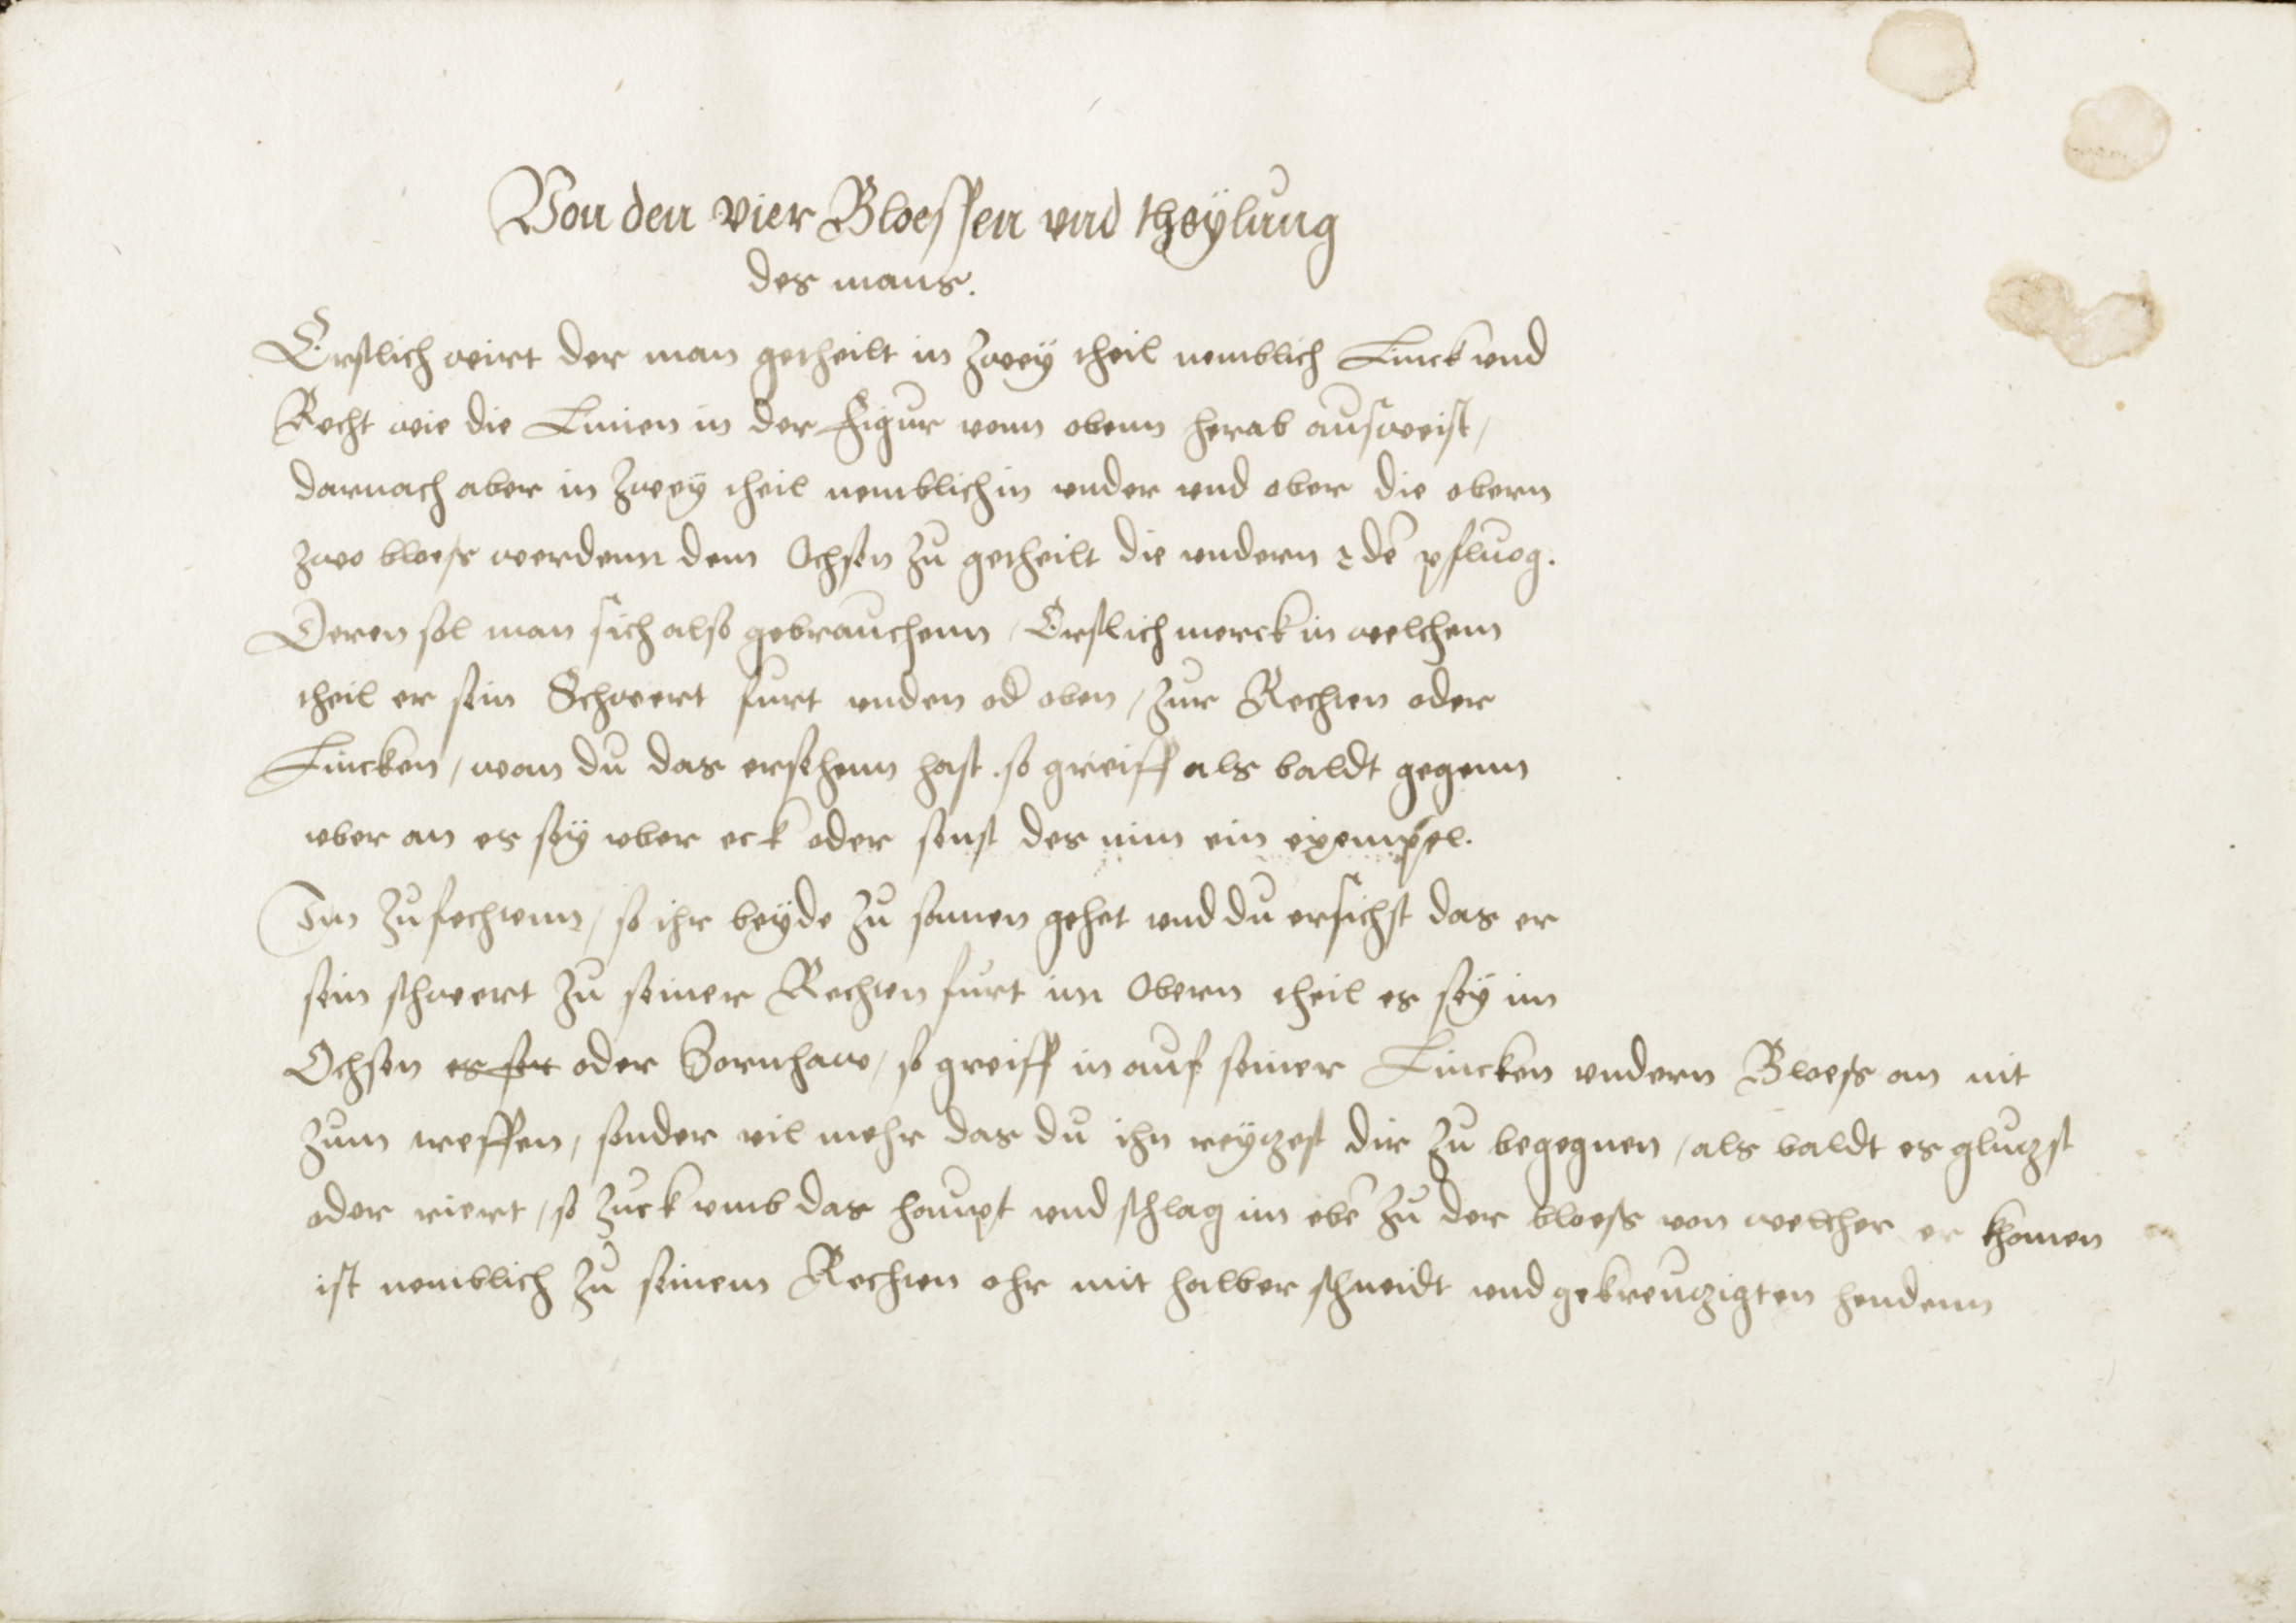 Von den vier Bloessen vnd theÿlung
des mans.
Erstlich wirt der man getheilt in zweÿ theil nemblich Linck vnd
Recht wie die Linien in der Figur vonn obenn herab ausweist /
darnach aber in zweÿ theil nemblich in vnder vnd ober die obern
zwo bloess werdenn dem Ochsen zu getheilt die vndern 2 dē pfluog.
Deren sol man sich also gebrauchenn / Erstlich merck in welchem
theil er sein Schwert furt vnden od oben / zur Rechten oder
Lincken / wan du das ersehenn hast . so greiff als baldt gegenn
vber an es seÿ vber eck oder sonst des nim ein exempel.
Im zufechtenn / so ihr beÿde zu samen gehet vnd du ersichst das er
sein schwert zu seiner Rechten furt im Obern theil es seÿ im
Ochsen es seÿ oder Zornhaw / so greiff in auf seiner Lincken vndern Bloess an nit
zum treffen / sonder vil mehr das du ihn reÿtzest dir zu begegnen / als baldt es glutzst
oder riert / so zuck vmb das haupt vnd schlag im ebē zu der bloess von welcher er khomen
ist nemblich zu seinem Rechten ohr mit halber schneidt vnd gekreutzigten hendenn